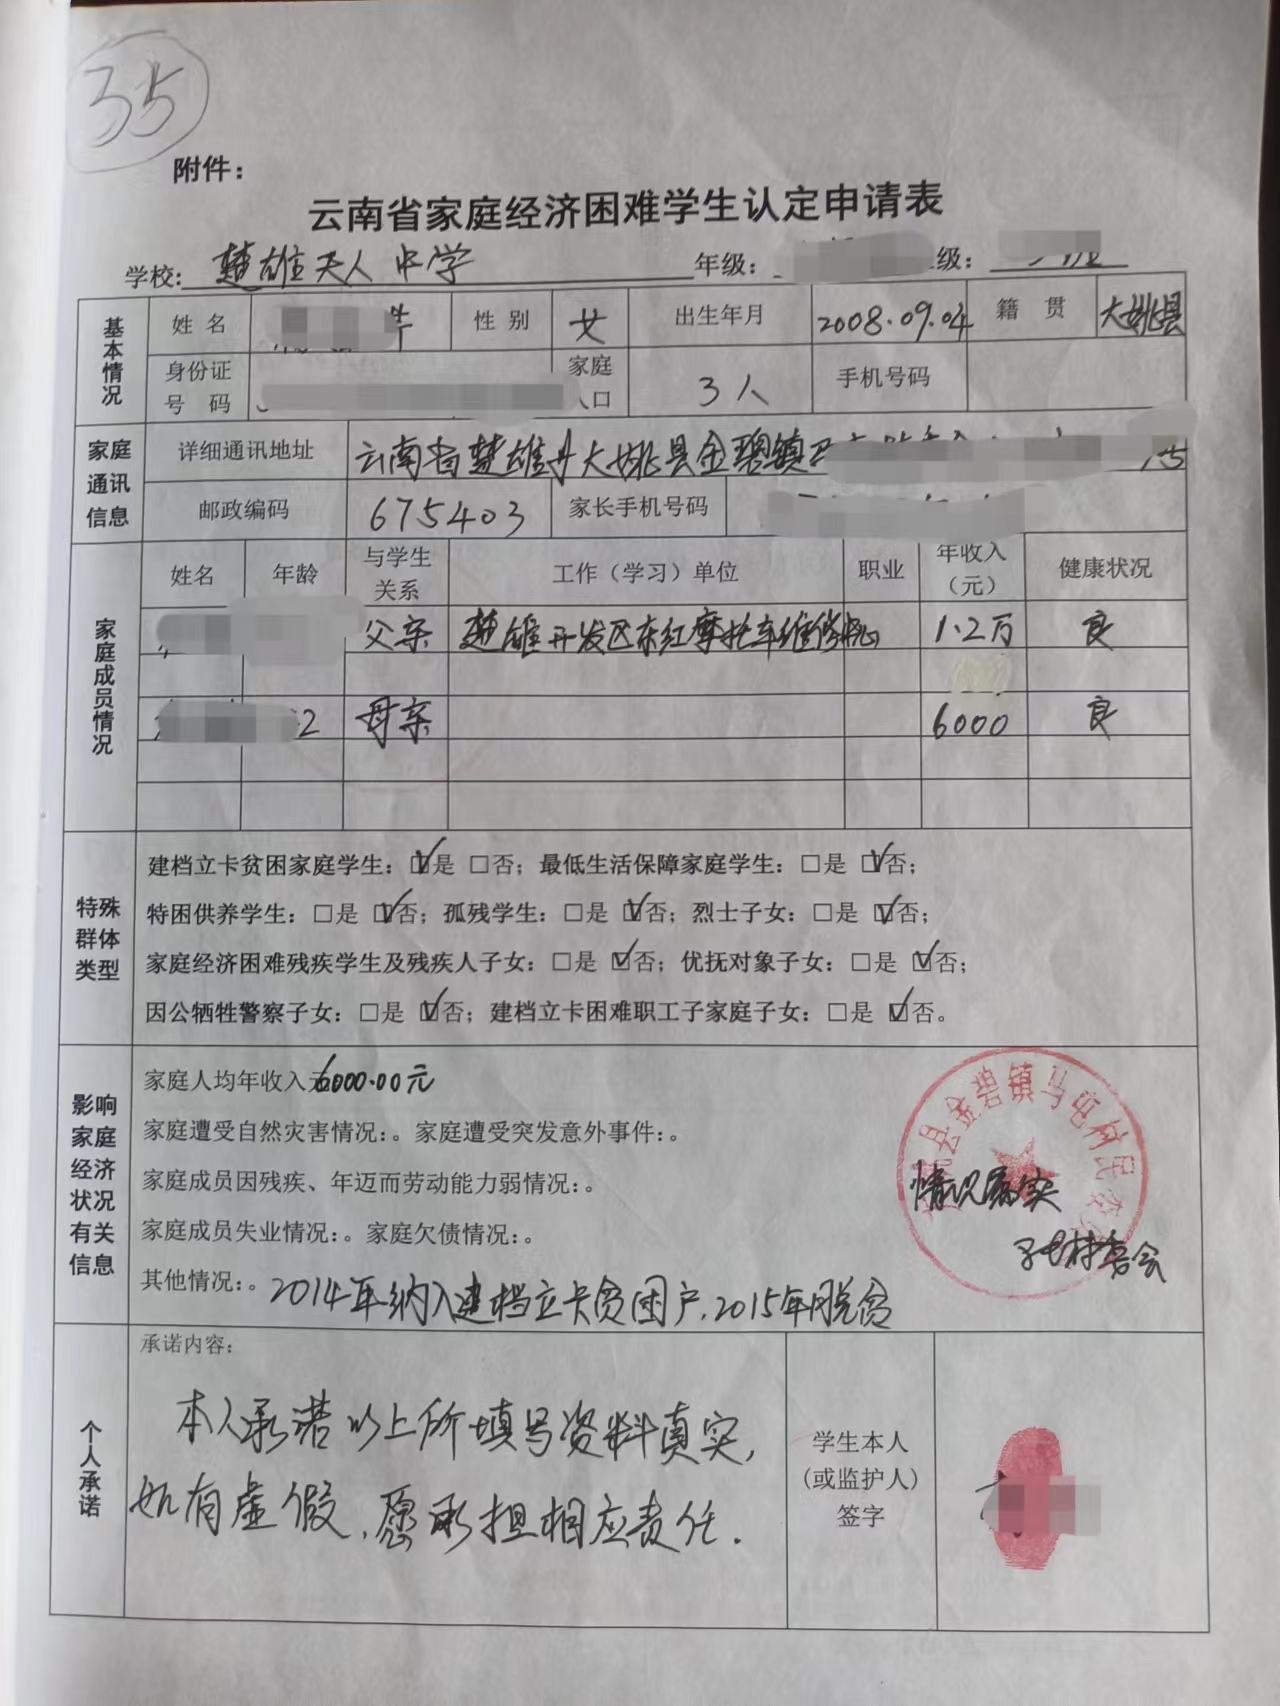 35
附件：
云南省家庭经济困难学生认定申请表
学校：楚雄天人中学 年级： 级：
基本情况 姓名 性别 女 出生年月 2008.09.04 籍贯 大姚县
身份证号码 家庭人口 3人 手机号码
家庭通讯信息 详细通讯地址 云南省楚雄州大姚县金碧镇
邮政编码 675403 家长手机号码
家庭成员情况 姓名 年龄 与学生关系 工作（学习）单位 职业 年收入（元） 健康状况
父亲 楚雄开发区东红摩托车维修 1.2万 良
2 母亲 6000 良
特殊群体类型
建档立卡贫困家庭学生：☑是 □否；最低生活保障家庭学生：□是 ☑否；
特困供养学生：□是 ☑否；孤残学生：□是 ☑否；烈士子女：□是 ☑否；
家庭经济困难残疾学生及残疾人子女：□是 ☑否；优抚对象子女：□是 ☑否；
因公牺牲警察子女：□是 ☑否；建档立卡困难职工子家庭子女：□是 ☑否。
影响家庭经济状况有关信息
家庭人均年收入 6000.00元
家庭遭受自然灾害情况：。家庭遭受突发意外事件：。
家庭成员因残疾、年迈而劳动能力弱情况：。
家庭成员失业情况：。家庭欠债情况：。
其他情况：。2014年纳入建档立卡贫困户，2015年脱贫
县金碧镇马屯村民委
情况属实
村委会
个人承诺
承诺内容：
本人承诺以上所填写资料真实，
如有虚假，愿承担相应责任．
学生本人
（或监护人）
签字